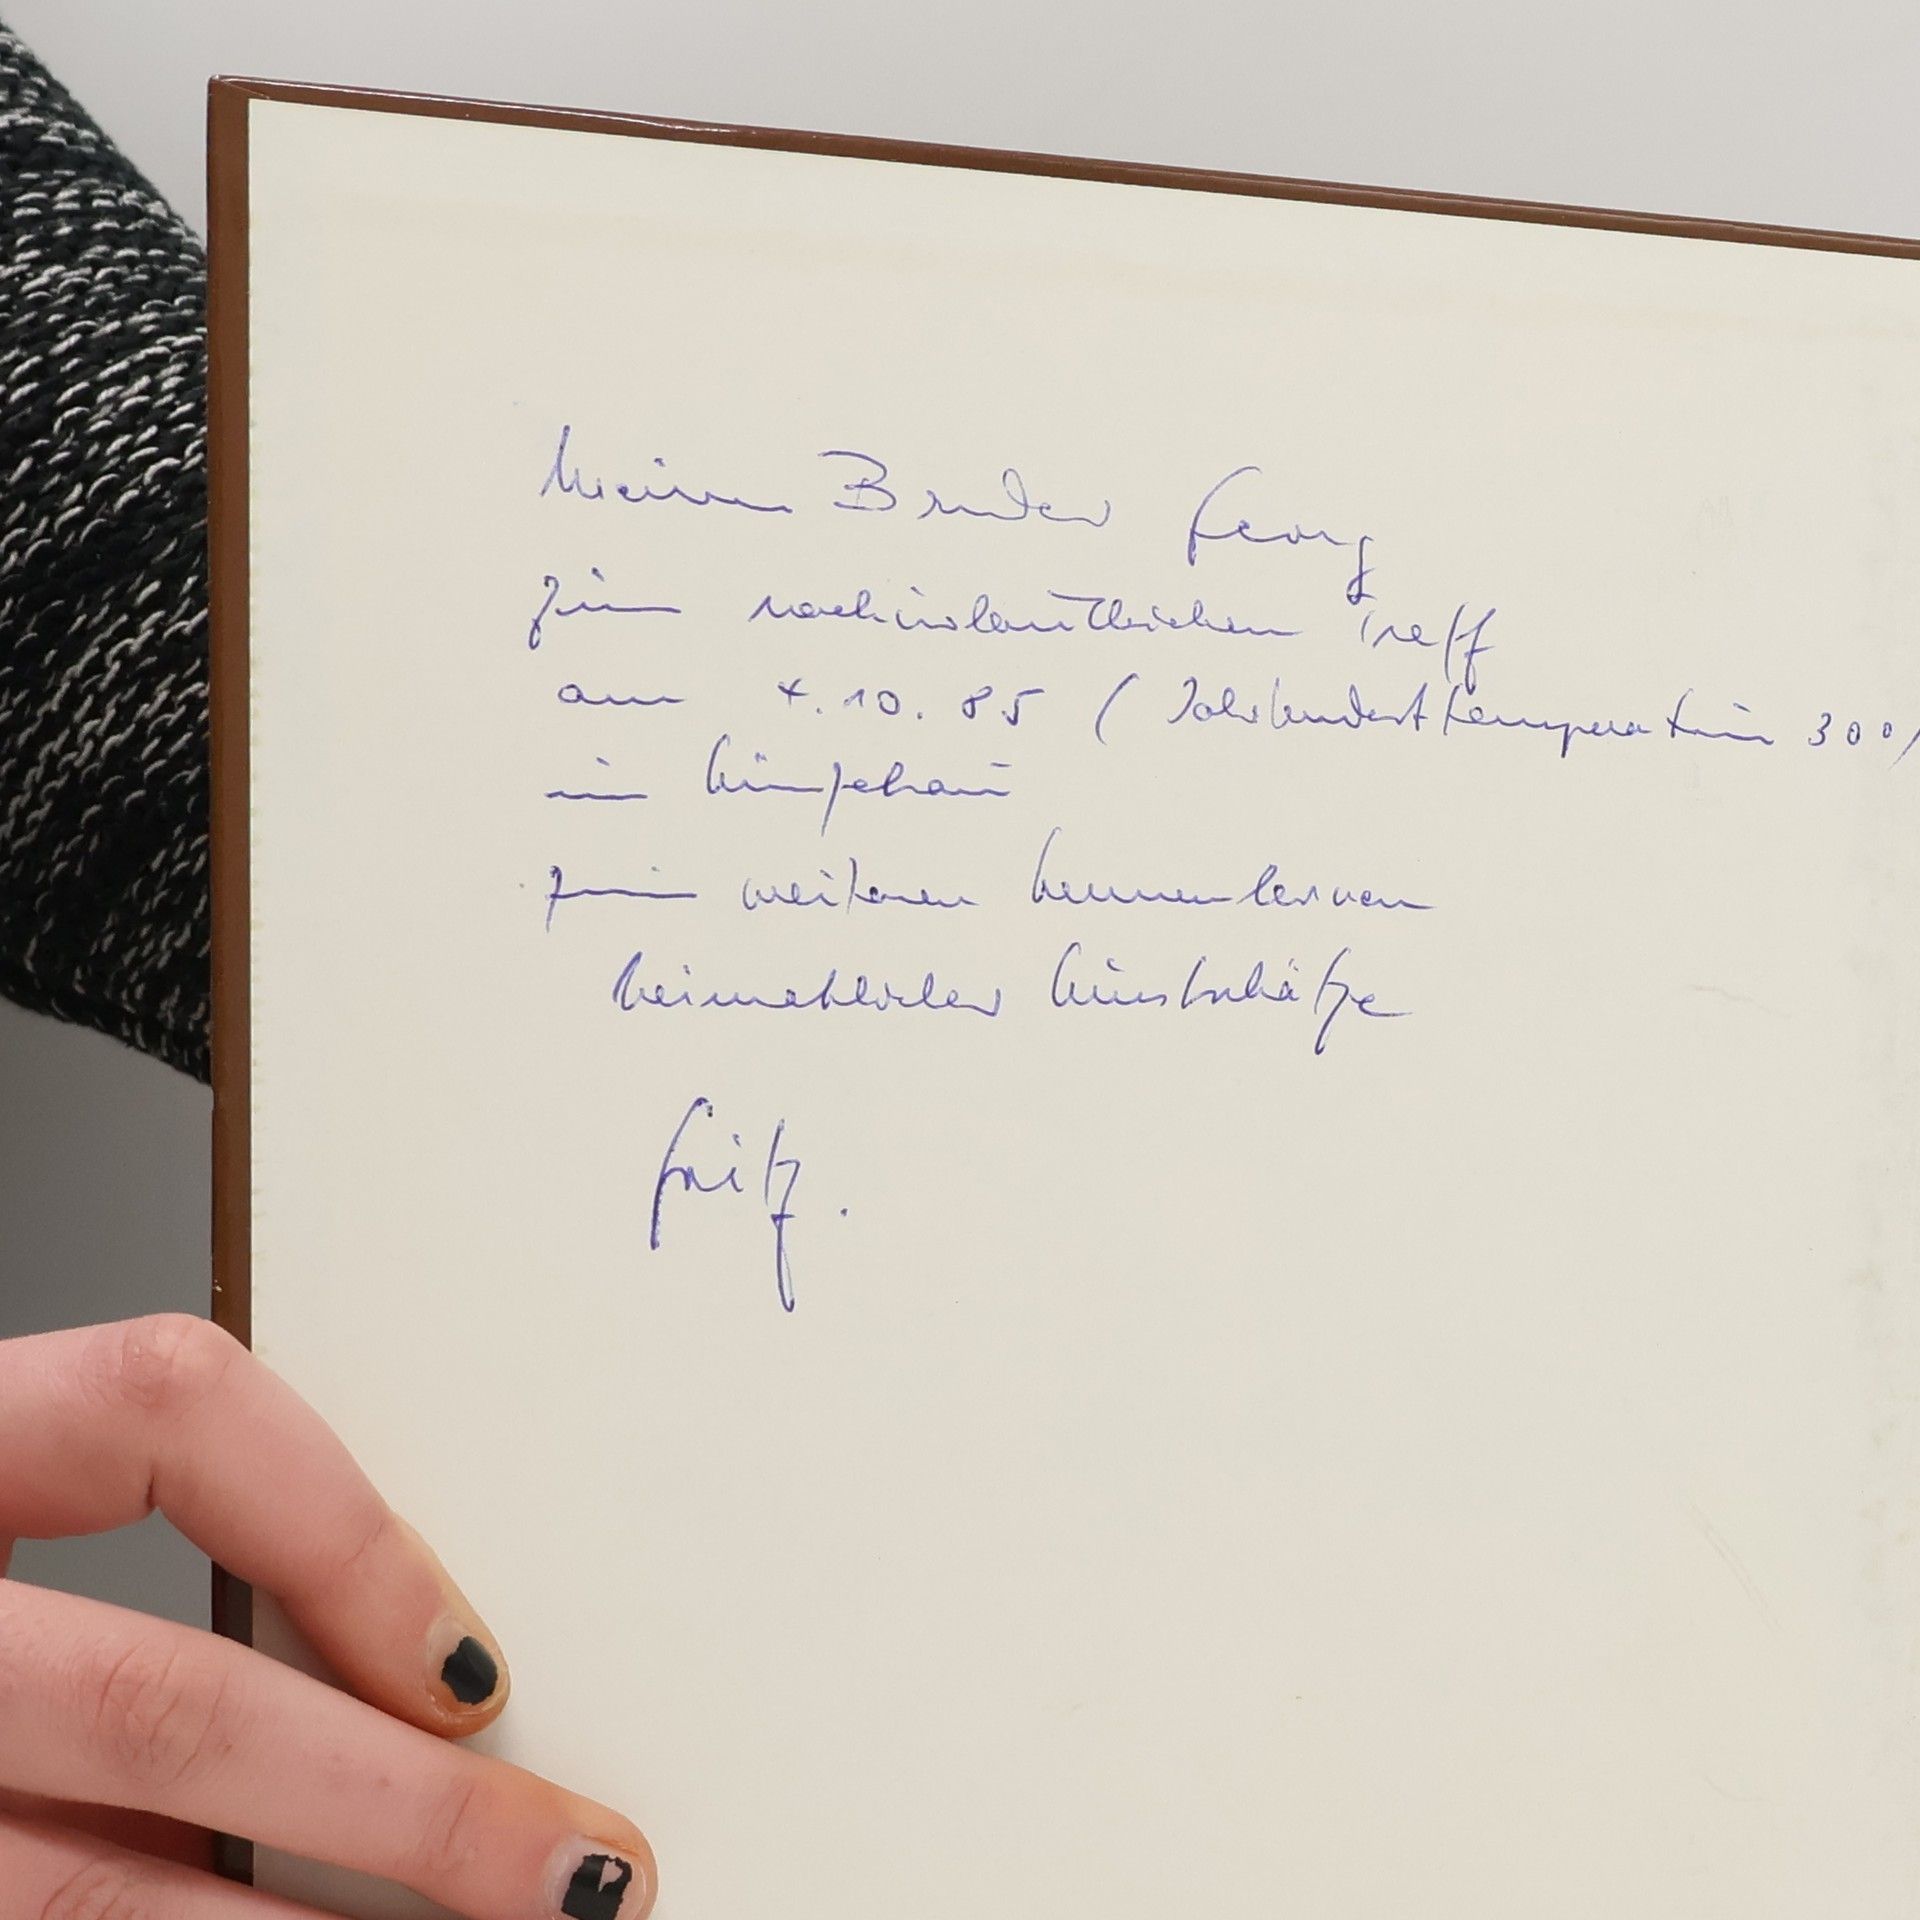 Meinem Bruder Georg
zum nachurlaublichen Treff
am 4.10.85 (Jahrhunderttemperatur 30°)
in
zum weiteren Kennenlernen
heimatlicher Kunstschätze
Fritz.